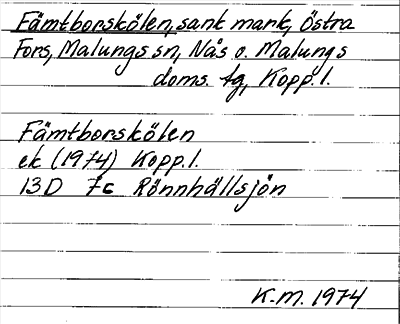 Fämtborskölen, sank mark, Östra
Fors, Malungs sn, Nås o. Malungs
doms. tg, Kopp. l.
Fämtborskölen
ek (1974) Kopp. l.
13D 7c Rönnhällsjön
K.M. 1974